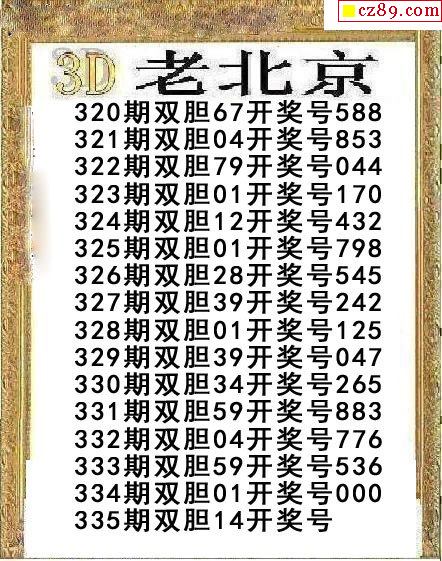 cz89.com
3D 老北京
320期双胆67开奖号588
321期双胆04开奖号853
322期双胆79开奖号044
323期双胆01开奖号170
324期双胆12开奖号432
325期双胆01开奖号798
326期双胆28开奖号545
327期双胆39开奖号242
328期双胆01开奖号125
329期双胆39开奖号047
330期双胆34开奖号265
331期双胆59开奖号883
332期双胆04开奖号776
333期双胆59开奖号536
334期双胆01开奖号000
335期双胆14开奖号